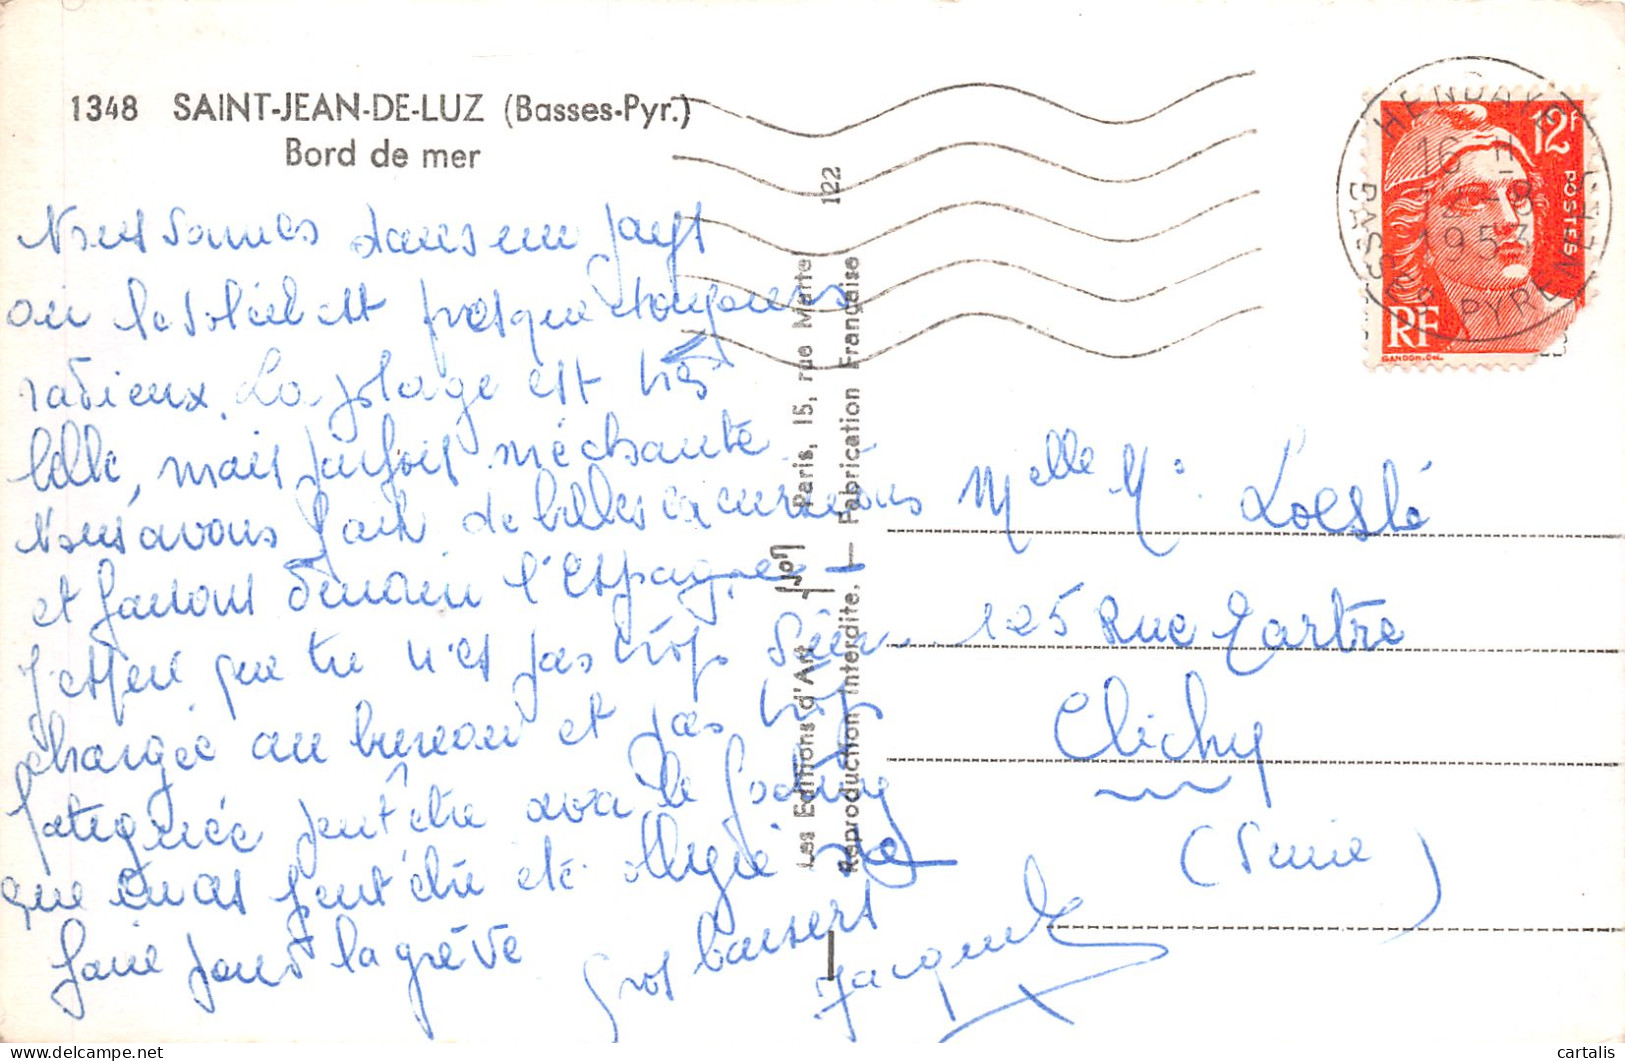 1348 SAINT-JEAN-DE-LUZ (Basses-Pyr.)
Bord de mer
Nous sommes dans un pays
où le soleil est presque toujours
radieux. La plage est très
belle, mais parfois méchante.
Nous avons fait de belles excursions
et faisons demain l'Espagne –
J'espère que tu n'es pas trop
chargée au bureau et pas trop
fatiguée peut être avec le
que tu as peut être été obligée de
faire pendt la grève
Gros baisers
Jacqueline
Les Editions d'Art Yvon Paris, 15, rue Martel
Reproduction interdite. — Fabrication Française
122
HENDAYE
BASSES PYRENEES
16 H
1953
12F
POSTES
RF
GANDON.DEL.
Melle M.
125 Rue Tartre
Clichy
(Seine)
cartalis